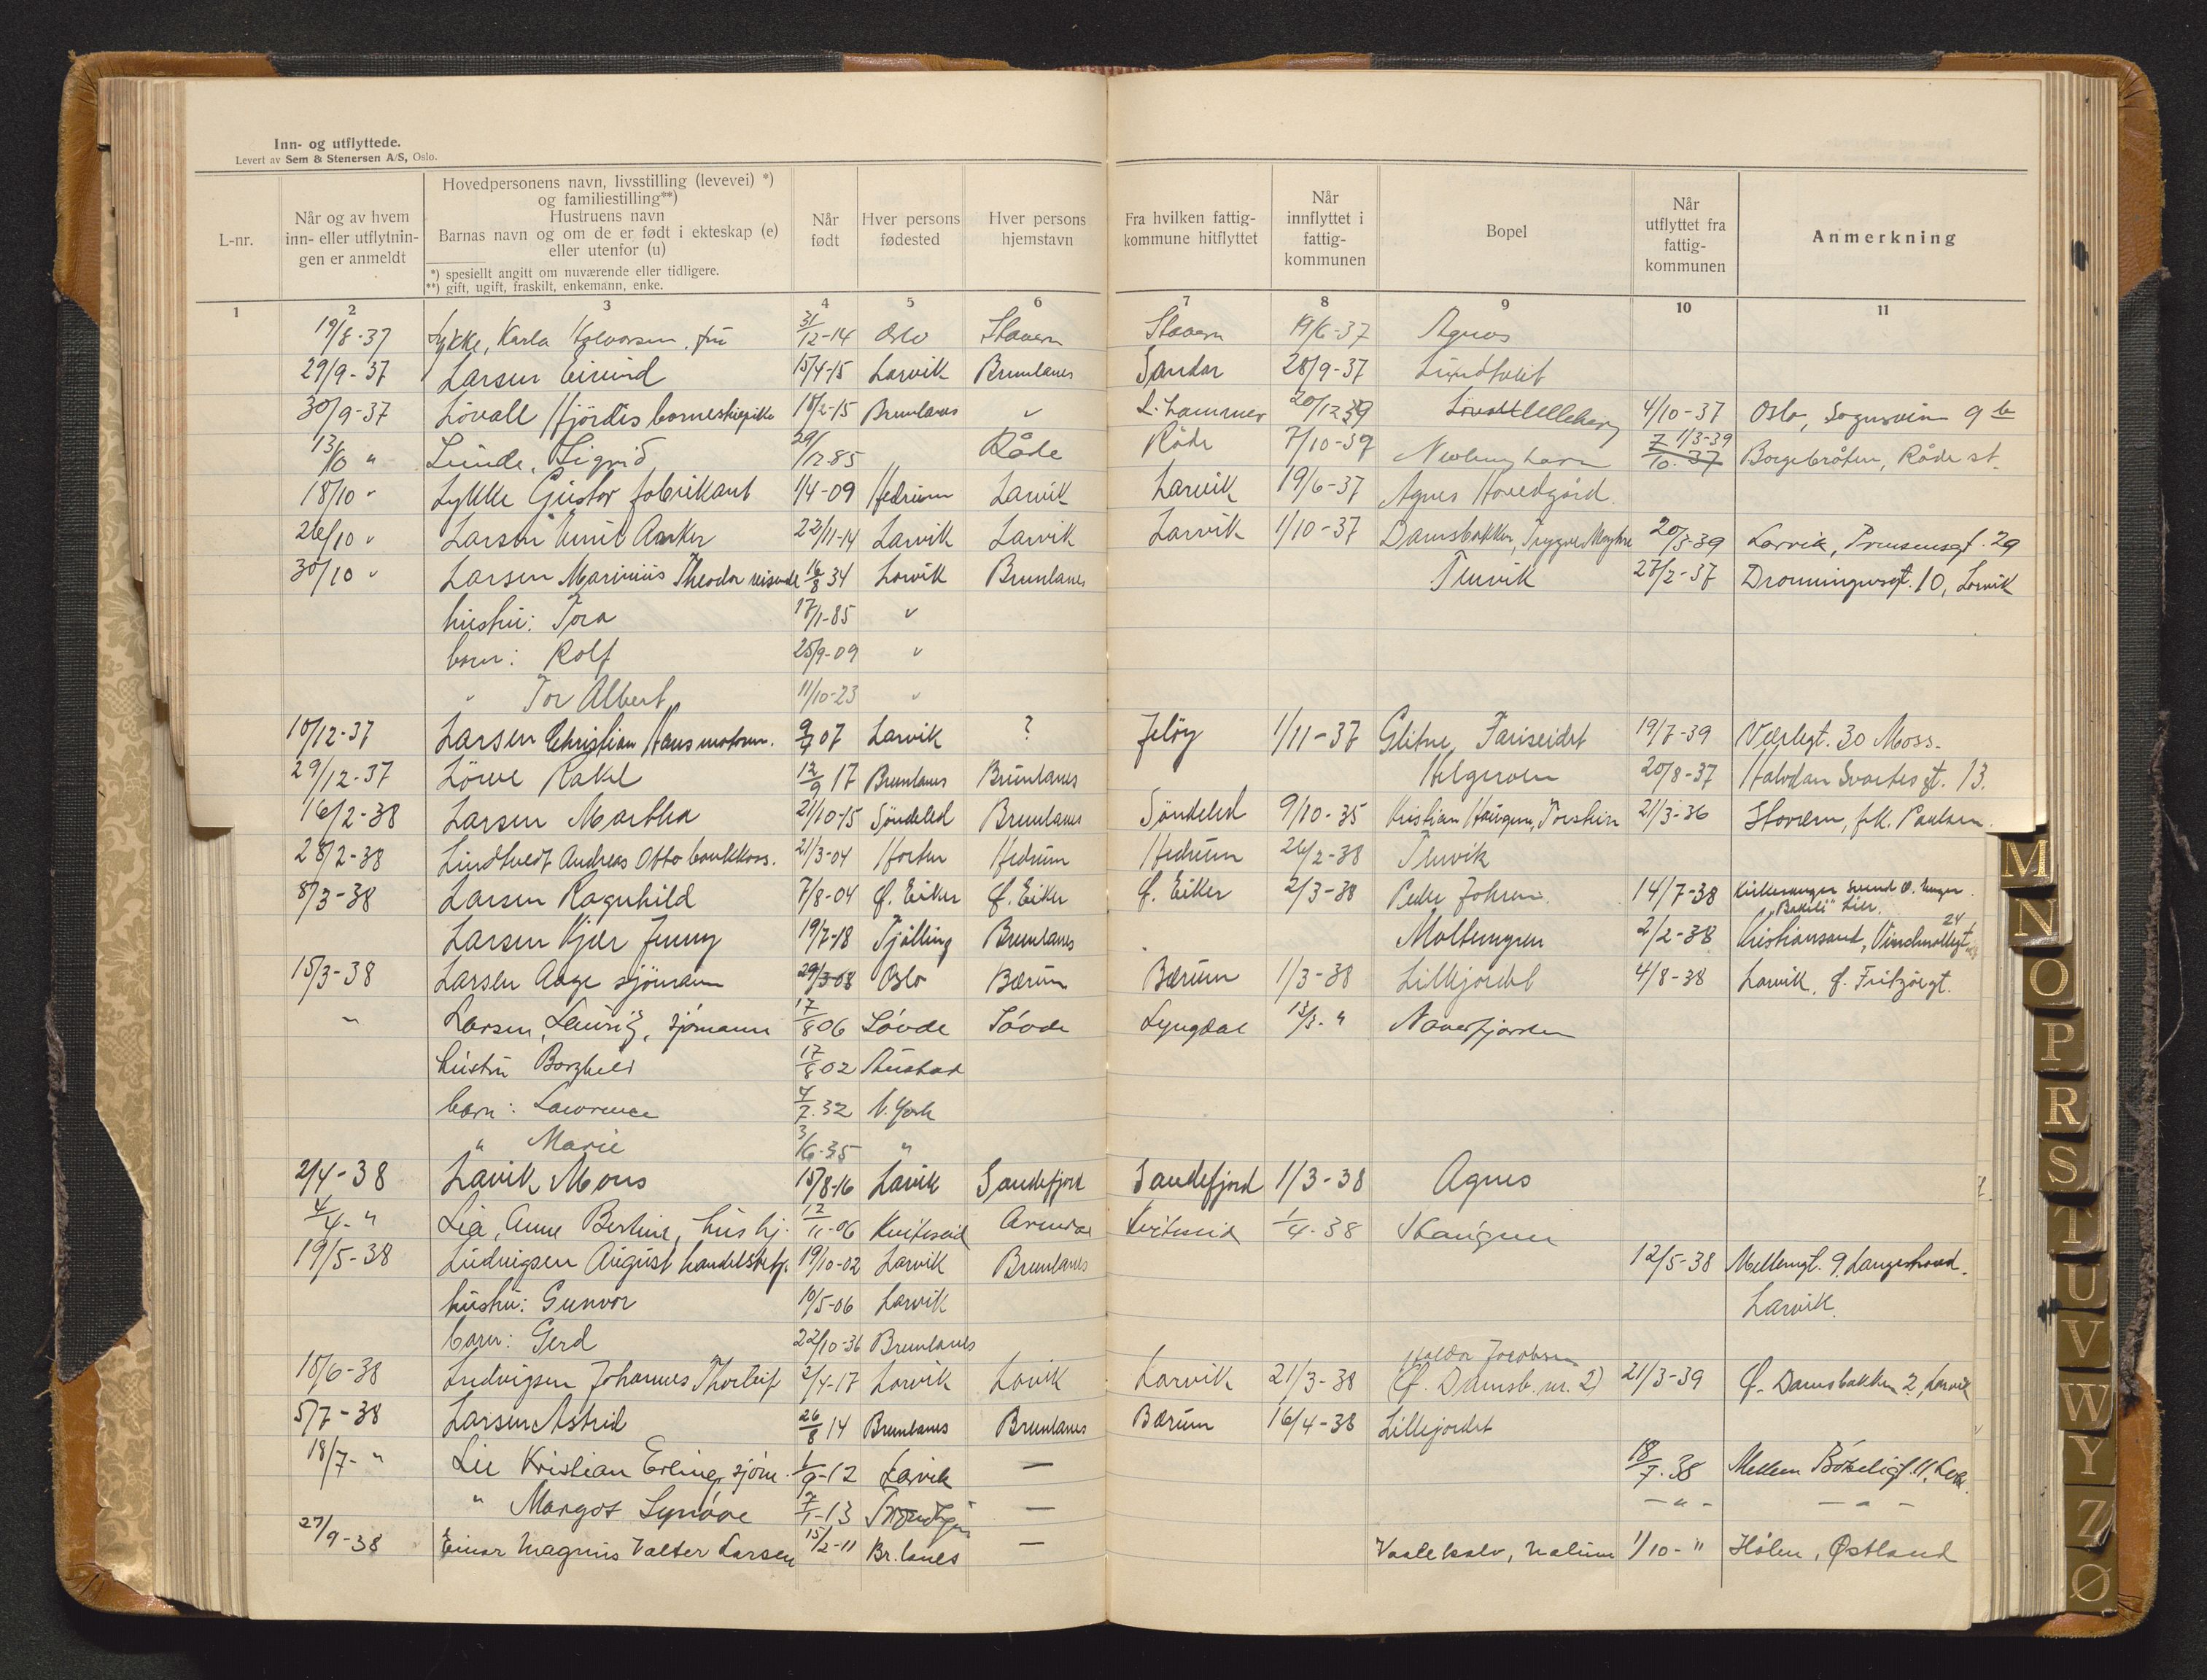 Inn- og utflyttede.
Levert av Sem & Stenersen A/S, Oslo.
L-nr.
Når og av hvem inn- eller utflytnin-gen er anmeldt
Hovedpersonens navn, livsstilling (levevei) *)
og familiestilling**)
Hustruens navn
Barnas navn og om de er født i ekteskap (e)
eller utenfor (u)
*) spesiellt angitt om nuværende eller tidligere.
**) gift, ugift, fraskilt, enkemann, enke.
Når født
Hver persons fødested
Hver persons hjemstavn
Fra hvilken fattig-kommune hitflyttet
Når innflyttet i fattig-kommunen
Bopel
Når utflyttet fra fattig-kommunen
Anmerkning
1 2 3 4 5 6 7 8 9 10 11
19/8-37 Lykke, Karla Halvorsen, fru 31/12-14 Oslo Stavern Stavern 19/6-37 Agnes
29/9-37 Larsen Eivind 15/4-15 Larvik Brunlanes Sandar 28/9-37 Lindtveit
30/9-37 Lövall Hjördis 18/2-15 Brunlanes " 4/10-37 Oslo, Sognsvein 9 b
13/10 " Lunde, Sigrid 29/12 85 Råde Råde 7/10-39 Nevlunghavn 1/3-39 7/10-37 Borgebråten, Råde st.
18/10 " Lykke Gustav fabrikant 1/4-09 Hedrum Larvik Larvik 19/6-37 Agnes Hovedgård.
26/10 " Larsen 22/11-14 Larvik Larvik Larvik 1/10-37 Damsbakken, Trygve 20/3-39 Larvik, Prinsensgt. 29
30/10 " Larsen Marinius Theodor reisende 16/8 34 Larvik Brunlanes Tenvik 27/2-37 Dronningensgt. 10, Larvik
hustru: Tora 17/1-85 "
barn: Rolf 25/9-09 "
" Tor Albert 11/10-23 "
10/12-37 Larsen Christian Hans motorm. 9/7 07 Larvik ? Jeløy 1/11-37 Glitne, Fariseidet 19/7-39 Værlegt. 30 Moss.
29/12-37 Löwe Rakel 12/9 17 Brunlanes Brunlanes Helgeroen 20/8-37 Halvdan Svartes gt. 13.
16/2-38 Larsen Martha 21/10-15 Söndeled Brunlanes Söndeled 9/10-35 Kristian Haugen, 21/3-36 Stavern, frk. Paulsen.
28/2-38 Lindtvedt Andreas Otto bankkass. 21/3-04 Horten Hedrum Hedrum 26/2-38 Tenvik
8/3-38 Larsen Ragnhild 7/8-04 Ø. Eiker Ø. Eiker Ø. Eiker 2/3-38 Peder Johnsen. 14/7-38 Kirkesanger Svend O. Unger.
"Bakeli" Lier.
Larsen Kjær Jenny 19/7-18 Tjölling Brunlanes Moltemyren 2/2-38 Kristiansand, Vindmöllegt. 24
15/3-38 Larsen Aage sjömann 29/3-08 Oslo Bærum Bærum 1/3-38 Lillejordet 4/8-38 Larvik, Ø. Fritzöegt.
" Larsen, Lauritz, sjömann 17/8 06 Søvde Søvde Lyngdal 13/3- " Naverfjorden
hustru Borghild 17/8 02 Austad
barn: Lawrence 7/7.32 N. York
" Marie 3/6.35 "
2/4-38 Lavik Mons 15/8-16 Lavik Sandefjord Sandefjord 1/3-38 Agnes
4/4- " Lia, Anne Bertine, hushj. 12/11-06 Kviteseid Arendal Kviteseid 1/4-38 Haugen
19/5-38 Ludvigsen August handelsbetj. 19/10-02 Larvik Brunlanes 12/5-38 Mellemgt. 9. Langestrand.
hustru: Gunvor 10/5-06 Larvik Larvik.
barn: Gerd 22/10-36 Brunlanes
18/6-38 Ludvigsen Johannes Thorleif 2/4-17 Larvik Larvik Larvik 21/3-38 Haldor Jacobsen (Ø. Damsb. nr. 2) 21/3-39 Ø. Damsbakken 2, Larvik
5/7-38 Larsen Astrid 26/8 14 Brunlanes Brunlanes Bærum 16/4-38 Lillejordet
18/7- " Lie Kristian Erling, sjöm. 1/9-12 Larvik — 18/7.38 Mellem Bökeligt. 11, Larv.
" Margot Synöve 17/1-13 — - " - - " -
27/9-38 Einar Magnus Valter Larsen 15/2-11 Br.lanes — 1/10- " Hölen, Østland
M
N
O
P
R
S
T
U
V
W
Y
Z
Ø